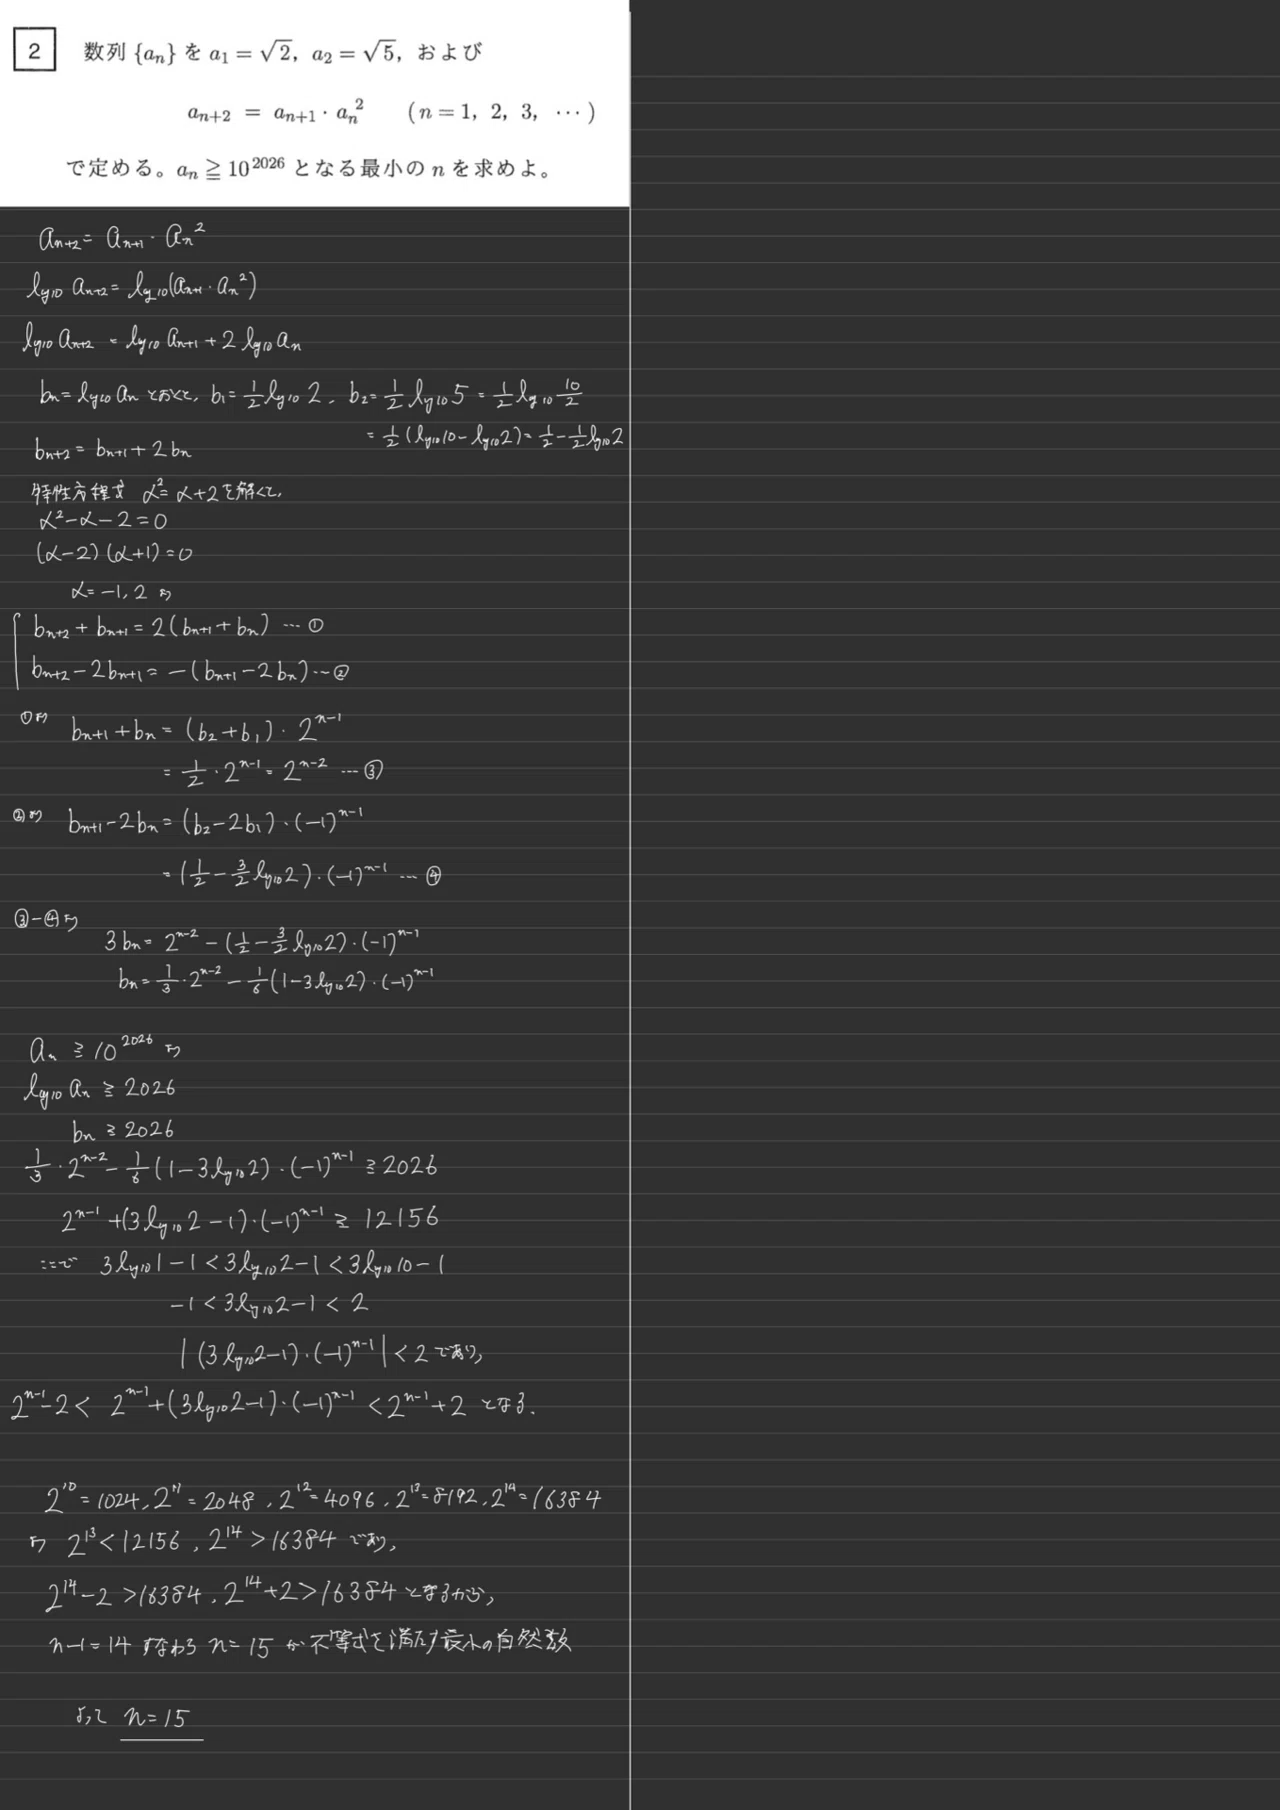 2 数列 {aₙ} を a₁ = √2, a₂ = √5, および
aₙ₊₂ = aₙ₊₁ · aₙ² (n = 1, 2, 3, ···)
で定める。aₙ ≧ 10²⁰²⁶ となる最小の n を求めよ。
aₙ₊₂ = aₙ₊₁ · aₙ²
log₁₀ aₙ₊₂ = log₁₀(aₙ₊₁ · aₙ²)
log₁₀ aₙ₊₂ = log₁₀ aₙ₊₁ + 2 log₁₀ aₙ
bₙ = log₁₀ aₙ とおくと, b₁ = 1/2 log₁₀ 2, b₂ = 1/2 log₁₀ 5 = 1/2 log₁₀ 10/2
= 1/2 (log₁₀ 10 - log₁₀ 2) = 1/2 - 1/2 log₁₀ 2
bₙ₊₂ = bₙ₊₁ + 2bₙ
特性方程式 α² = α + 2 を解くと,
α² - α - 2 = 0
(α - 2)(α + 1) = 0
α = -1, 2 より
bₙ₊₂ + bₙ₊₁ = 2(bₙ₊₁ + bₙ) ··· ①
bₙ₊₂ - 2bₙ₊₁ = -(bₙ₊₁ - 2bₙ) ··· ②
①より bₙ₊₁ + bₙ = (b₂ + b₁) · 2ⁿ⁻¹
= 1/2 · 2ⁿ⁻¹ = 2ⁿ⁻² ··· ③
②より bₙ₊₁ - 2bₙ = (b₂ - 2b₁) · (-1)ⁿ⁻¹
= (1/2 - 3/2 log₁₀ 2) · (-1)ⁿ⁻¹ ··· ④
③-④より
3bₙ = 2ⁿ⁻² - (1/2 - 3/2 log₁₀ 2) · (-1)ⁿ⁻¹
bₙ = 1/3 · 2ⁿ⁻² - 1/6 (1 - 3 log₁₀ 2) · (-1)ⁿ⁻¹
aₙ ≧ 10²⁰²⁶ より
log₁₀ aₙ ≧ 2026
bₙ ≧ 2026
1/3 · 2ⁿ⁻² - 1/6 (1 - 3 log₁₀ 2) · (-1)ⁿ⁻¹ ≧ 2026
2ⁿ⁻¹ + (3 log₁₀ 2 - 1) · (-1)ⁿ⁻¹ ≧ 12156
ここで 3 log₁₀ 1 - 1 < 3 log₁₀ 2 - 1 < 3 log₁₀ 10 - 1
-1 < 3 log₁₀ 2 - 1 < 2
|(3 log₁₀ 2 - 1) · (-1)ⁿ⁻¹| < 2 であり,
2ⁿ⁻¹ - 2 < 2ⁿ⁻¹ + (3 log₁₀ 2 - 1) · (-1)ⁿ⁻¹ < 2ⁿ⁻¹ + 2 となる.
2¹⁰ = 1024, 2¹¹ = 2048, 2¹² = 4096, 2¹³ = 8192, 2¹⁴ = 16384
より 2¹³ < 12156, 2¹⁴ > 16384 であり,
2¹⁴ - 2 > 16384, 2¹⁴ + 2 > 16384 となるから,
n - 1 = 14 すなわち n = 15 が不等式を満たす最小の自然数
よって n = 15